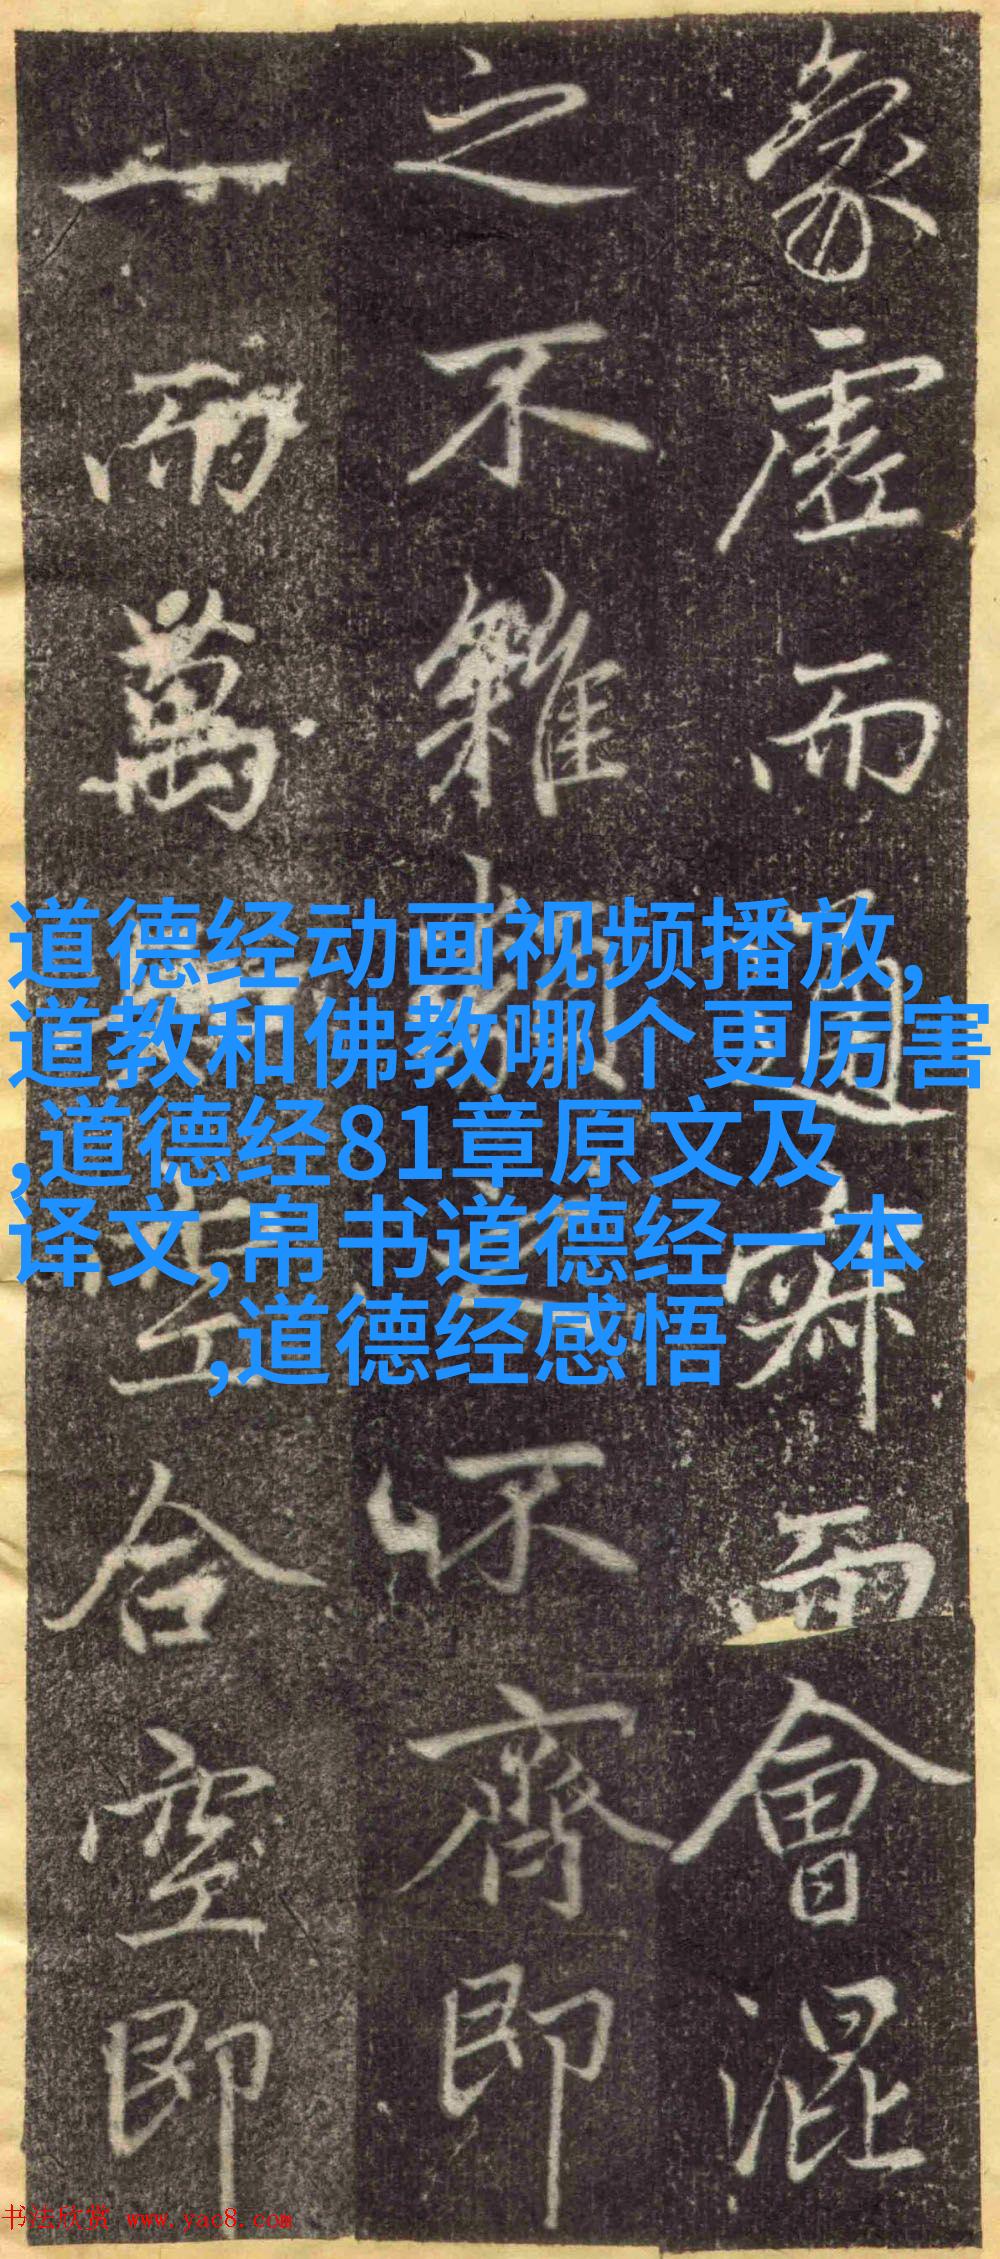 象虛而通而會混
之不雜類之不齊即
一而萬合空即
道德经动画视频播放,
道教和佛教哪个更厉害
,道德经81章原文及
译文,帛书道德经一本
,道德经感悟
书法欣赏 www.yac8.com